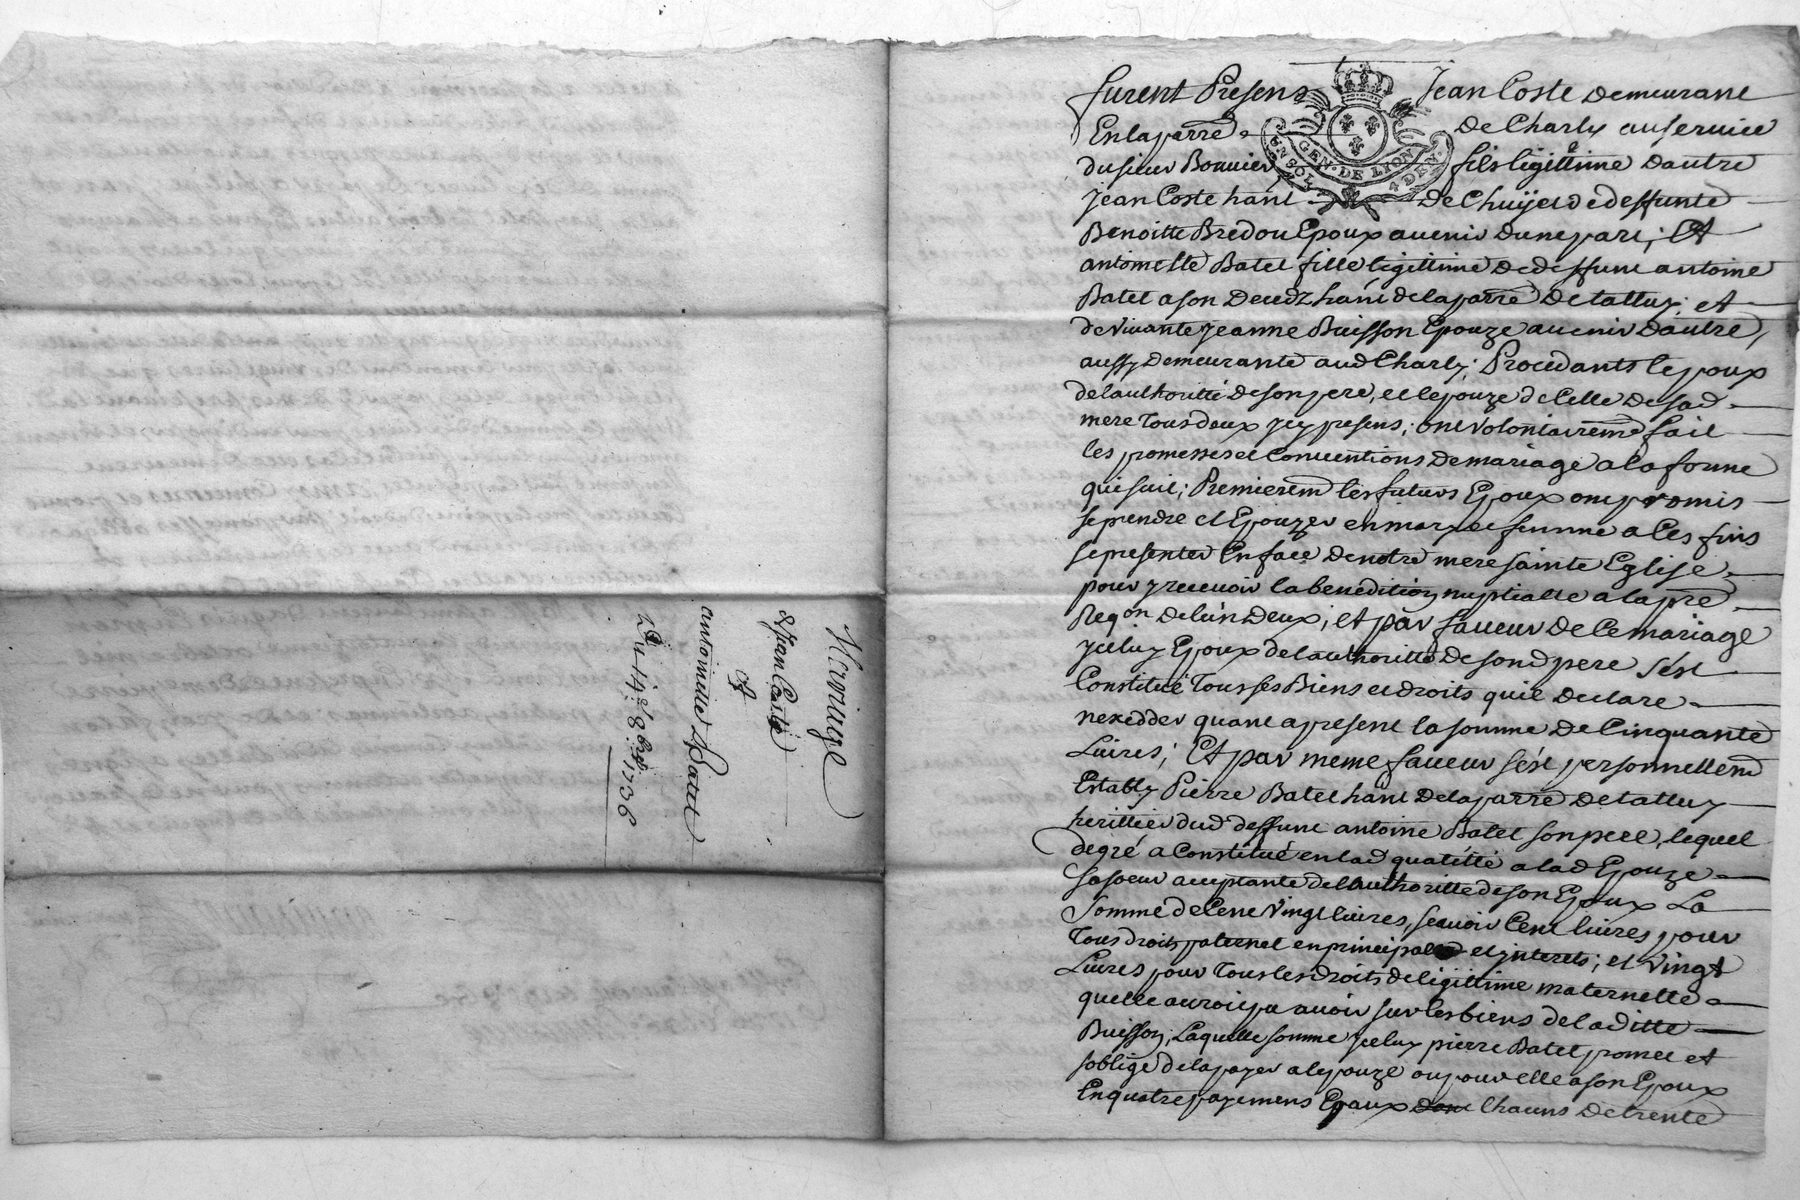 Mariage
de Jean Coste
Et
antoinette Batet
Du 14e 8bre 1736
furent Presens Jean Coste demeurant
En laparre de Charly au service
du sieur Bouvier fils legittime dautre
Jean Coste hant de Chuÿer et de deffunte
Benoitte Bredou Epoux avenir dune part; Et
antoinette Batet fille legittime de deffunt antoine
Batet a son decedz hant de laparre de talluy; et
de vivante Jeanne Buisson Epouze avenir dautre,
aussy demeurante aud Charly; Procedants lepoux
de lauthoritté de son pere, et lepouze de Celle de sad
mere tous deux icy presens; ont volontairemt fait
les promesses et Conventions de mariage a la forme
qui suit; Premieremt les futurs Epoux ont promis
se prendre et Epouzer en mary et femme a Ces fins
se presenter En face de notre mere sainte Eglise
pour y recevoir la benedition nuptialle a la pre
Reqon de lun deux; et par faveur de Ce mariage
Jceluy Epoux de lauthoritté de sond pere sést
Constitué tous ses Biens et droits quil declare
nexedder quant apresent la somme de Cinquante
Livres; Et par meme faveur sést personnellemt
Estably Pierre Batet hant de laparre de talluy
herittier dud deffunt antoine Batet son pere, lequel
de gré a Constitué en lad quatitté a lad Epouze
sa soeur acceptante de lauthoritté de son Epoux La
Somme de Cent Vingt livres, scavoir Cent livres pour
tous droits paternel en principal et jnterets; et vingt
Livres pour tous les droits de legittime maternelle
quelle auroit pu avoir sur les biens de laditte
Buisson; Laquelle somme jceluy pierre Batet promet et
soblige de la payer a lepouze ou pour elle a son Epoux
En quatre payemens Egaux dont Chacuns de trente
GEN. DE LYON
UN SOL 4 DEN.